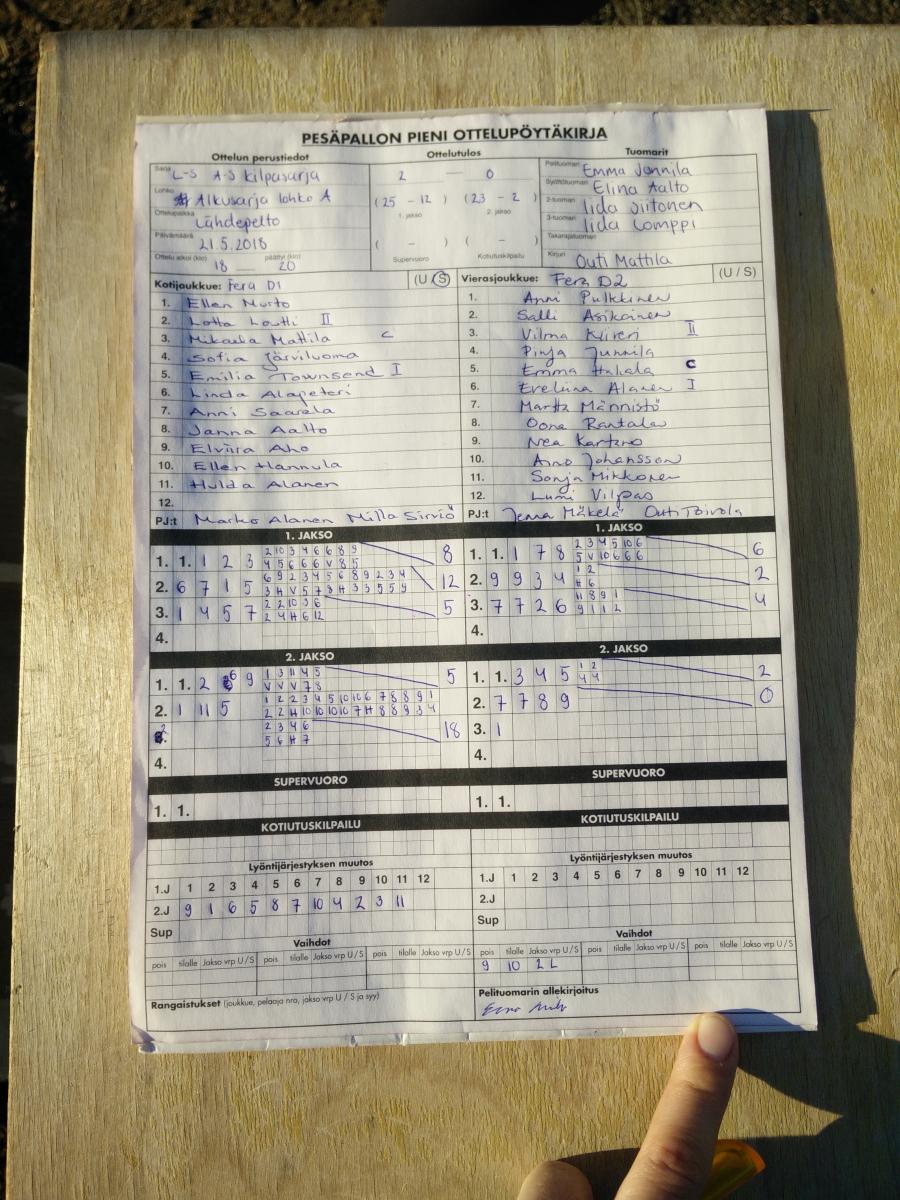 PESÄPALLON PIENI OTTELUPÖYTÄKIRJA
Ottelun perustiedot
Sarja L-S A-S Kilpasarja
Lohko Alkusarja lohko A
Ottelupaikka Lähdepelto
Päivämäärä 21.5.2018
Ottelu alkoi (klo) 18 päättyi (klo) 20
Ottelutulos
2 — 0
(25 - 12) (23 - 2)
1. jakso 2. jakso
( - ) ( - )
Supervuoro Kotiutuskilpailu
Tuomarit
Pelituomari Emma Jonnila
Syöttötuomari Elina Aalto
2-tuomari Iida Siitonen
3-tuomari Iida Lomppi
Takarajatuomari
Kirjuri Outi Mattila
Kotijoukkue: Fera D1 (U / S)
1. Ellen Nurto
2. Lotta Loutti II
3. Mikaela Mattila C
4. Sofia Järviluoma
5. Emilia Townsend I
6. Linda Alapeteri
7. Anni Saarela
8. Janna Aalto
9. Elviira Aho
10. Ellen Hannula
11. Hulda Alanen
12.
PJ:t Marko Alanen Milla Sirviö
Vierasjoukkue: Fera D2 (U / S)
1. Anni Pulkkinen
2. Salli Asikainen
3. Vilma Kiveri II
4. Pinja Junnila
5. Emma Hakala C
6. Eveliina Alanen I
7. Martta Männistö
8. Oona Rantala
9. Nea
10. Aino Johansson
11. Sonja Mikkonen
12. Lumi Vilpas
PJ:t Jenna Mäkelä Outi Toivola
1. JAKSO
1. 1. 1 2 3 2 10 3 4 6 6 8 9 8
4 5 6 6 6 V 8 5
2. 6 7 1 5 6 9 2 3 4 5 6 8 9 2 3 4 12
3 H V 5 7 8 H 3 3 5 5 9
3. 1 4 5 7 2 2 10 3 6 5
2 4 H 6 12
4.
1. JAKSO
1. 1. 1 7 8 2 3 4 5 10 6 6
5 V 10 6 6 6
2. 9 9 3 4 1 2 2
H 6
3. 7 7 2 6 11 8 9 1 4
9 1 1 2
4.
2. JAKSO
1. 1. 2 6 9 1 3 11 4 5 5
V V V 7 8
2. 1 11 5 1 2 2 3 4 5 10 10 6 7 8 8 9 1
2 2 H 10 10 10 10 7 H 8 8 9 3 4
2 2 3 4 6 18
5 6 H 7
4.
2. JAKSO
1. 1. 3 4 5 1 2 2
4 4
2. 7 7 8 9 0
3. 1
4.
SUPERVUORO
1. 1.
SUPERVUORO
1. 1.
KOTIUTUSKILPAILU
KOTIUTUSKILPAILU
Lyöntijärjestyksen muutos
1.J 1 2 3 4 5 6 7 8 9 10 11 12
2.J 9 1 6 5 8 7 10 4 2 3 11
Sup
Lyöntijärjestyksen muutos
1.J 1 2 3 4 5 6 7 8 9 10 11 12
2.J
Sup
Vaihdot
pois tilalle Jakso vrp U/S pois tilalle Jakso vrp U/S pois tilalle Jakso vrp U/S
Vaihdot
pois tilalle Jakso vrp U/S pois tilalle Jakso vrp U/S pois tilalle Jakso vrp U/S
9 10 2 L
Rangaistukset (joukkue, pelaaja nro, jakso vrp U / S ja syy)
Pelituomarin allekirjoitus